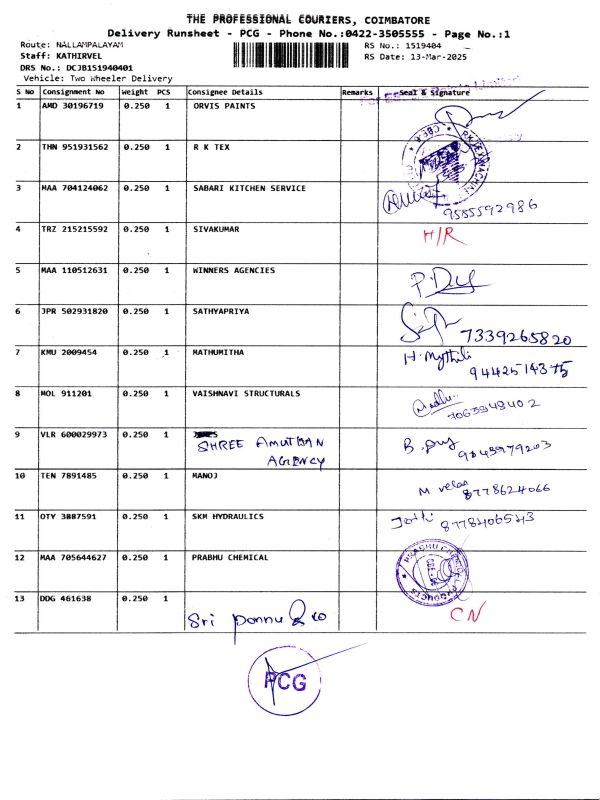 THE PROFESSIONAL COURIERS, COIMBATORE
Delivery Runsheet - PCG - Phone No.:0422-3505555 - Page No.:1
Route: NALLAMPALAYAM RS No.: 1519404
Staff: KATHIRVEL RS Date: 13-Mar-2025
DRS No.: DCJB151940401
Vehicle: Two Wheeler Delivery
S No Consignment No Weight PCS Consignee Details Remarks Seal & Signature
1 AMD 30196719 0.250 1 ORVIS PAINTS
2 THN 951931562 0.250 1 R K TEX
3 MAA 704124062 0.250 1 SABARI KITCHEN SERVICE
9585592986
4 TRZ 215215592 0.250 1 SIVAKUMAR H/R
5 MAA 110512631 0.250 1 WINNERS AGENCIES
6 JPR 502931820 0.250 1 SATHYAPRIYA
7339265820
7 KMU 2009454 0.250 1 MATHUMITHA H. Mythili
9442514375
8 MOL 911201 0.250 1 VAISHNAVI STRUCTURALS
9 VLR 600029973 0.250 1
SHREE AMUTBAN
AGENCY
10 TEN 7891485 0.250 1 MANOJ
M velan
8778624066
11 OTY 3887591 0.250 1 SKM HYDRAULICS
12 MAA 705644627 0.250 1 PRABHU CHEMICAL
13 DDG 461638 0.250 1 CN
Sri ponnu & co
PCG